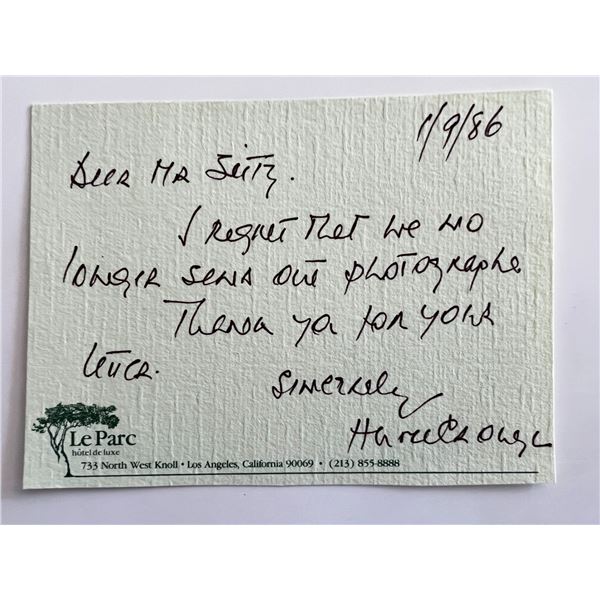 1/9/86
Dear Mr Seitz.
I regret that we no
longer send out photographs
Thank you for your
letter.
Sincerely
Le Parc
hôtel de luxe
733 North West Knoll • Los Angeles, California 90069 • (213) 855-8888